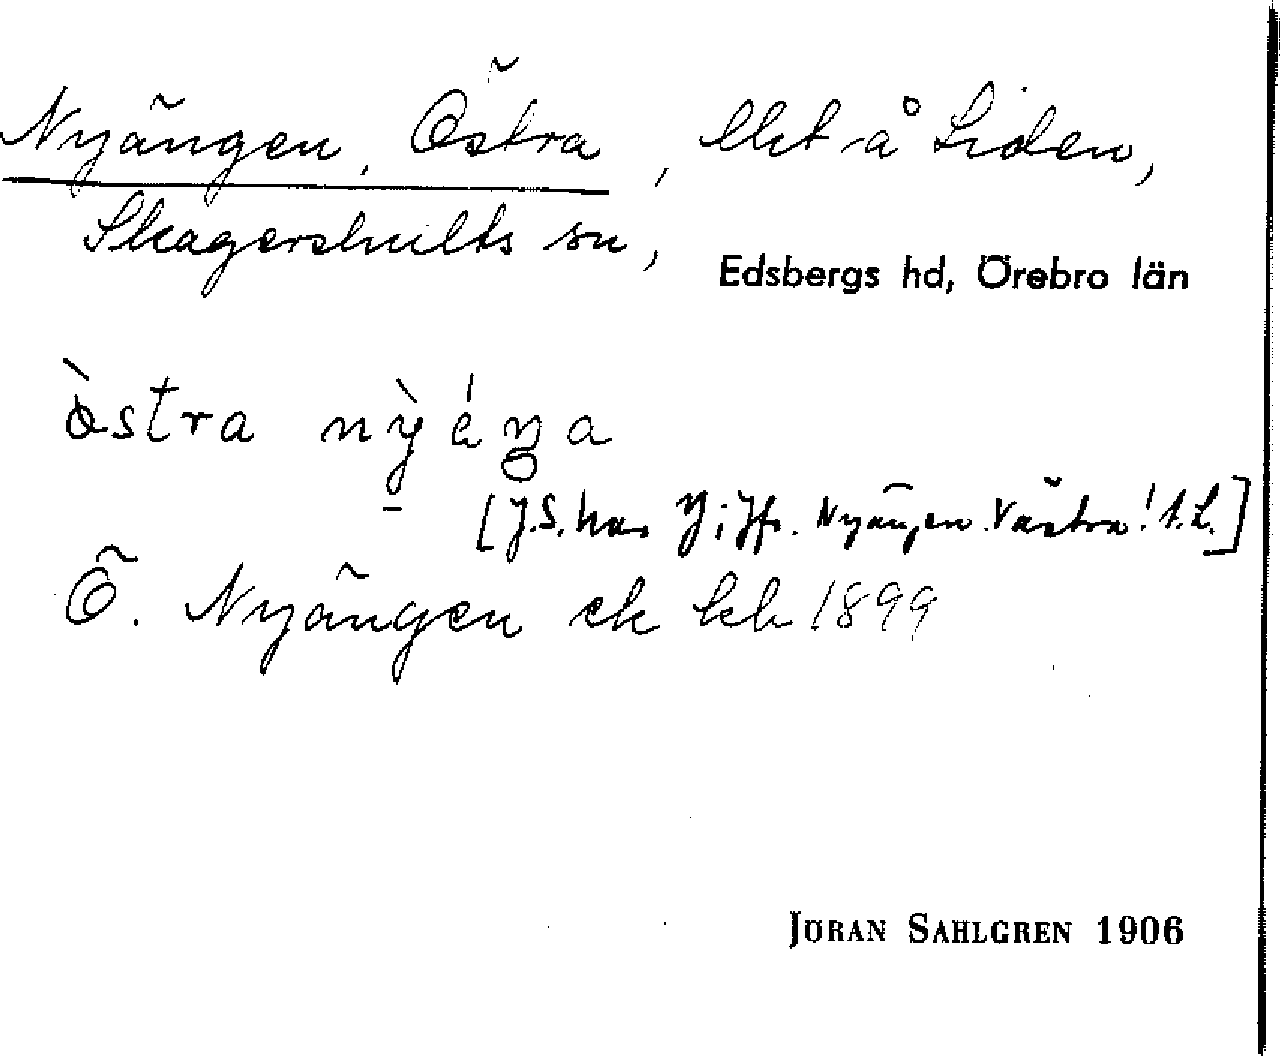 Nyängen, Östra, lht å Liden,
Skagershults sn,
Edsbergs hd, Örebro län
östra
[J.S. har y i ffr. Nyängen Västra!
Ö. Nyängen ek kb 1899
JÖRAN SAHLGREN 1906